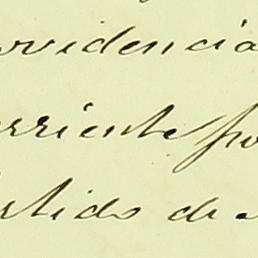 ovidencia
rriente po
rtido de